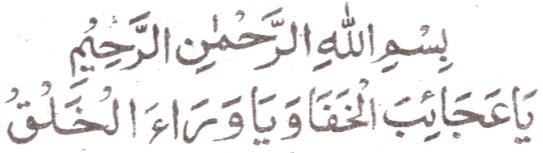 بِسْمِ اللهِ الرَّحْمٰنِ الرَّحِيْمِ
يَا عَجَائِبَ الْخَفَا وَ يَا وَرَاءَ الْخَلْقُ